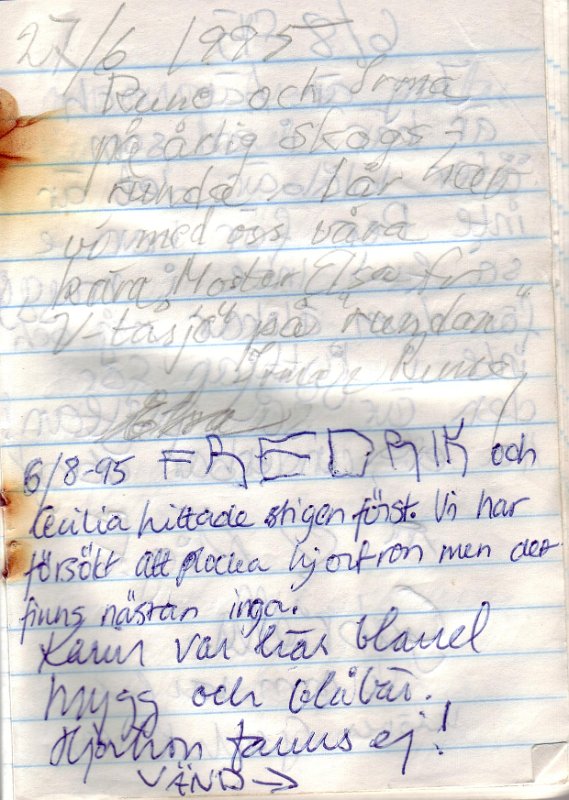 27/6 1995
Rune och Irma
på årlig skogs-
runda. I år har
vi med oss våra
kära "Moster Elsa" från
V-tåsjö på "rundan"
Irma, Rune,
Elsa
6/8-95 FREDRIK och
Cecilia hittade stigen först. Vi har
försökt att plocka hjortron men det
finns nästan inga.
Karin var här bland
mygg och blåbär.
Hjortron fanns ej!
VÄND →